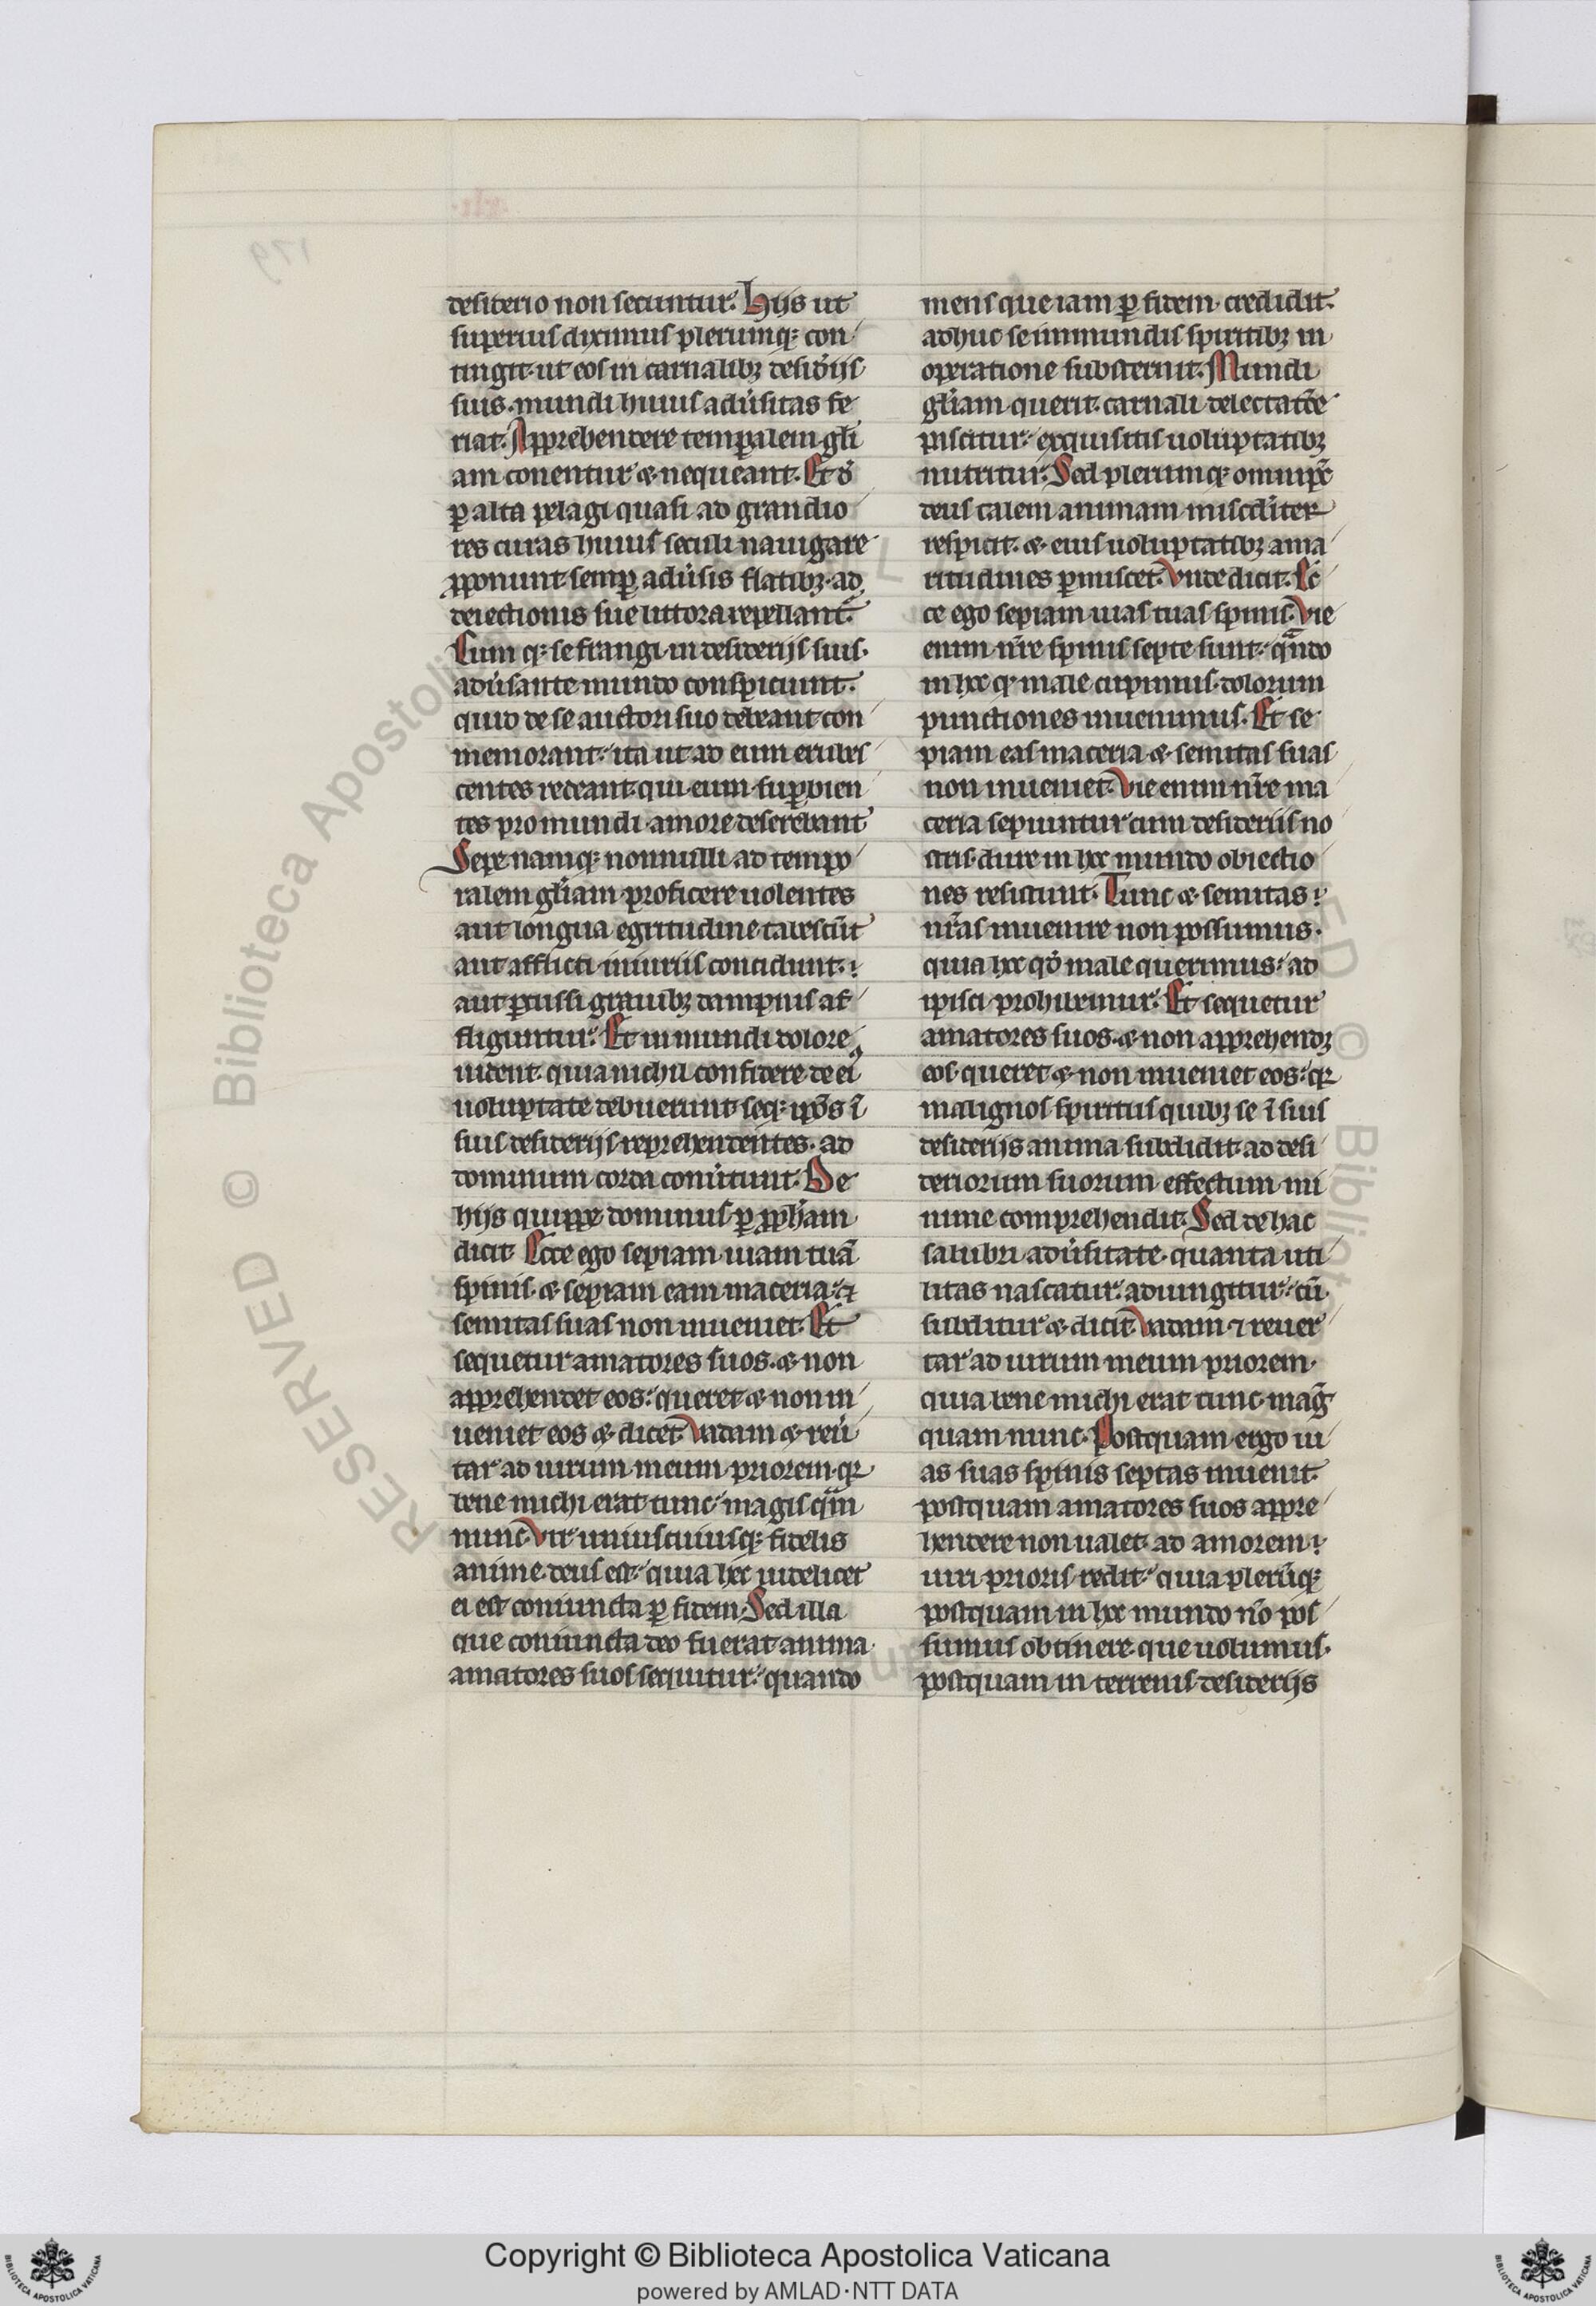 desiderio non secuntur. Hijs ut
superius diximus plerumq; con
tingit. ut eos in carnalibꝫ desid̾ijs
suis. mundi huius adu̾sitas fe
riat. Apprehendere temꝑalem gl̃i
am conentur & nequeant. Et
ꝑ alta pelagi quasi ad grandio
res curas huius seculi nauigare
ꝓponunt semꝑ adu̾sis flatibꝫ. ad
deiectionis sue littora repellant̾.
Cum q; se frangi. in desiderijs suis.
adu̾sante mundo conspiciunt.
quid de se auctori suo debeant con
memorant. ita ut ad eum erubes
centes redeant. qui eum suꝑbien
tes pro mundi amore deserebant
Sepe namq; nonnulli ad tempo
ralem gl̃iam proficere uolentes
aut longua egritudine tabescũt
aut afflicti iniuriis concidunt.
aut ꝑcussi grauibꝫ dampnis af
fliguntur. Et in mundi dolore
uident. quia nichil confidere de ei
uoluptate debuerunt seq; ip̃os ĩ
suis desiderijs reprehendentes. ad
dominum corda conu̾tunt. De
hijs quippe dominus ꝑ ꝓph̃am
dicit. Ecce ego sepiam uiam tuã
spinis. & sepiam eam maceria. ⁊
semitas suas non inueniet. Et
sequetur amatores suos. & non
apprehendet eos. queret & non in
ueniet eos & dicet. Vadam & reu̾
tar ad uirum meum priorem. qr
bene michi erat tunc. magis q̃m
nunc. Vir uniuscuiusq; fidelis
anime. deus est. quia hec uidelicet
ei est coniuncta ꝑ fidem. Sed illa
que coniuncta deo fuerat anima.
amatores suos sequitur. quando
mens que iam ꝑ fidem. credidit.
adhuc se inmundis spiritibꝫ in
operatione substernit. Mundi
gl̃iam querit. carnali delectatõe
pascitur. exquisitis uoluptatibꝫ
nutritur. Sed plerumq; omnip̃c
deus talem animam miscd̾iter
respicit. & eius uoluptatibꝫ ama
ritudines ꝑmiscet. Vnde dicit. Ec
ce ego sepiam uias tuas spinis. Vie
enim nr̃e spinis septe sunt. qñdo
in hoc q male cupimus. dolorum
punctiones inuenimus. Et se
piam eas maceria & semitas suas
non inueniet. Vie enim nr̃e ma
ceria sepiuntur cum desideriis no
stris. dure in hoc mundo obiectio
nes resistunt. Tunc & semitas
nr̃as inuenire non possumus.
quia hoc qd̾ male querimus. ad
ipisci prohibemur. Et sequetur
amatores suos. & non apprehendꝫ
eos. queret & non inueniet eos. qr
malignos spiritus quibꝫ se ĩ suis
desiderijs anima subdidit. ad desi
deriorum suorum effectum mi
nime comprehendit. Sed de hac
salubri adu̾sitate. quanta uti
litas nascatur. adiungitur. cũ
subditur & dicit. Vadam ⁊ reuer
tar ad uirum meum priorem.
quia bene michi erat tunc. mag̃
quam nunc. Postquam ergo ui
as suas spinis septas inuenit.
postquam amatores suos appre
hendere non ualet. ad amorem
uiri prioris redit. quia plerũq;
postquam in hoc mundo nõ pos
sumus obtinere. que uolumus.
postquam in terrenis desiderijs
Copyright © Biblioteca Apostolica Vaticana
powered by AMLAD·NTT DATA